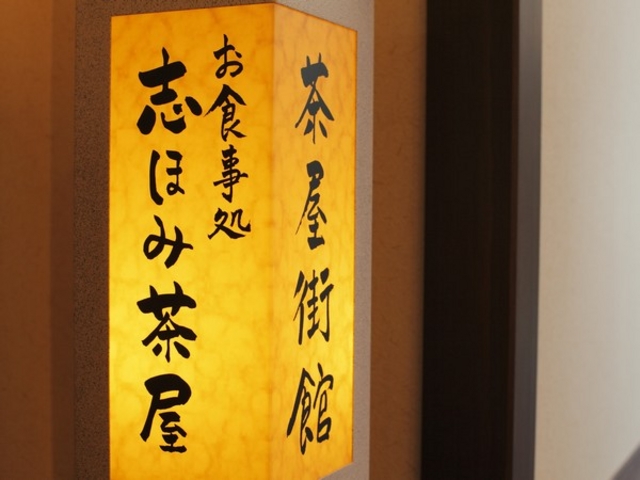 茶屋街館
お食事処
志ほみ茶屋